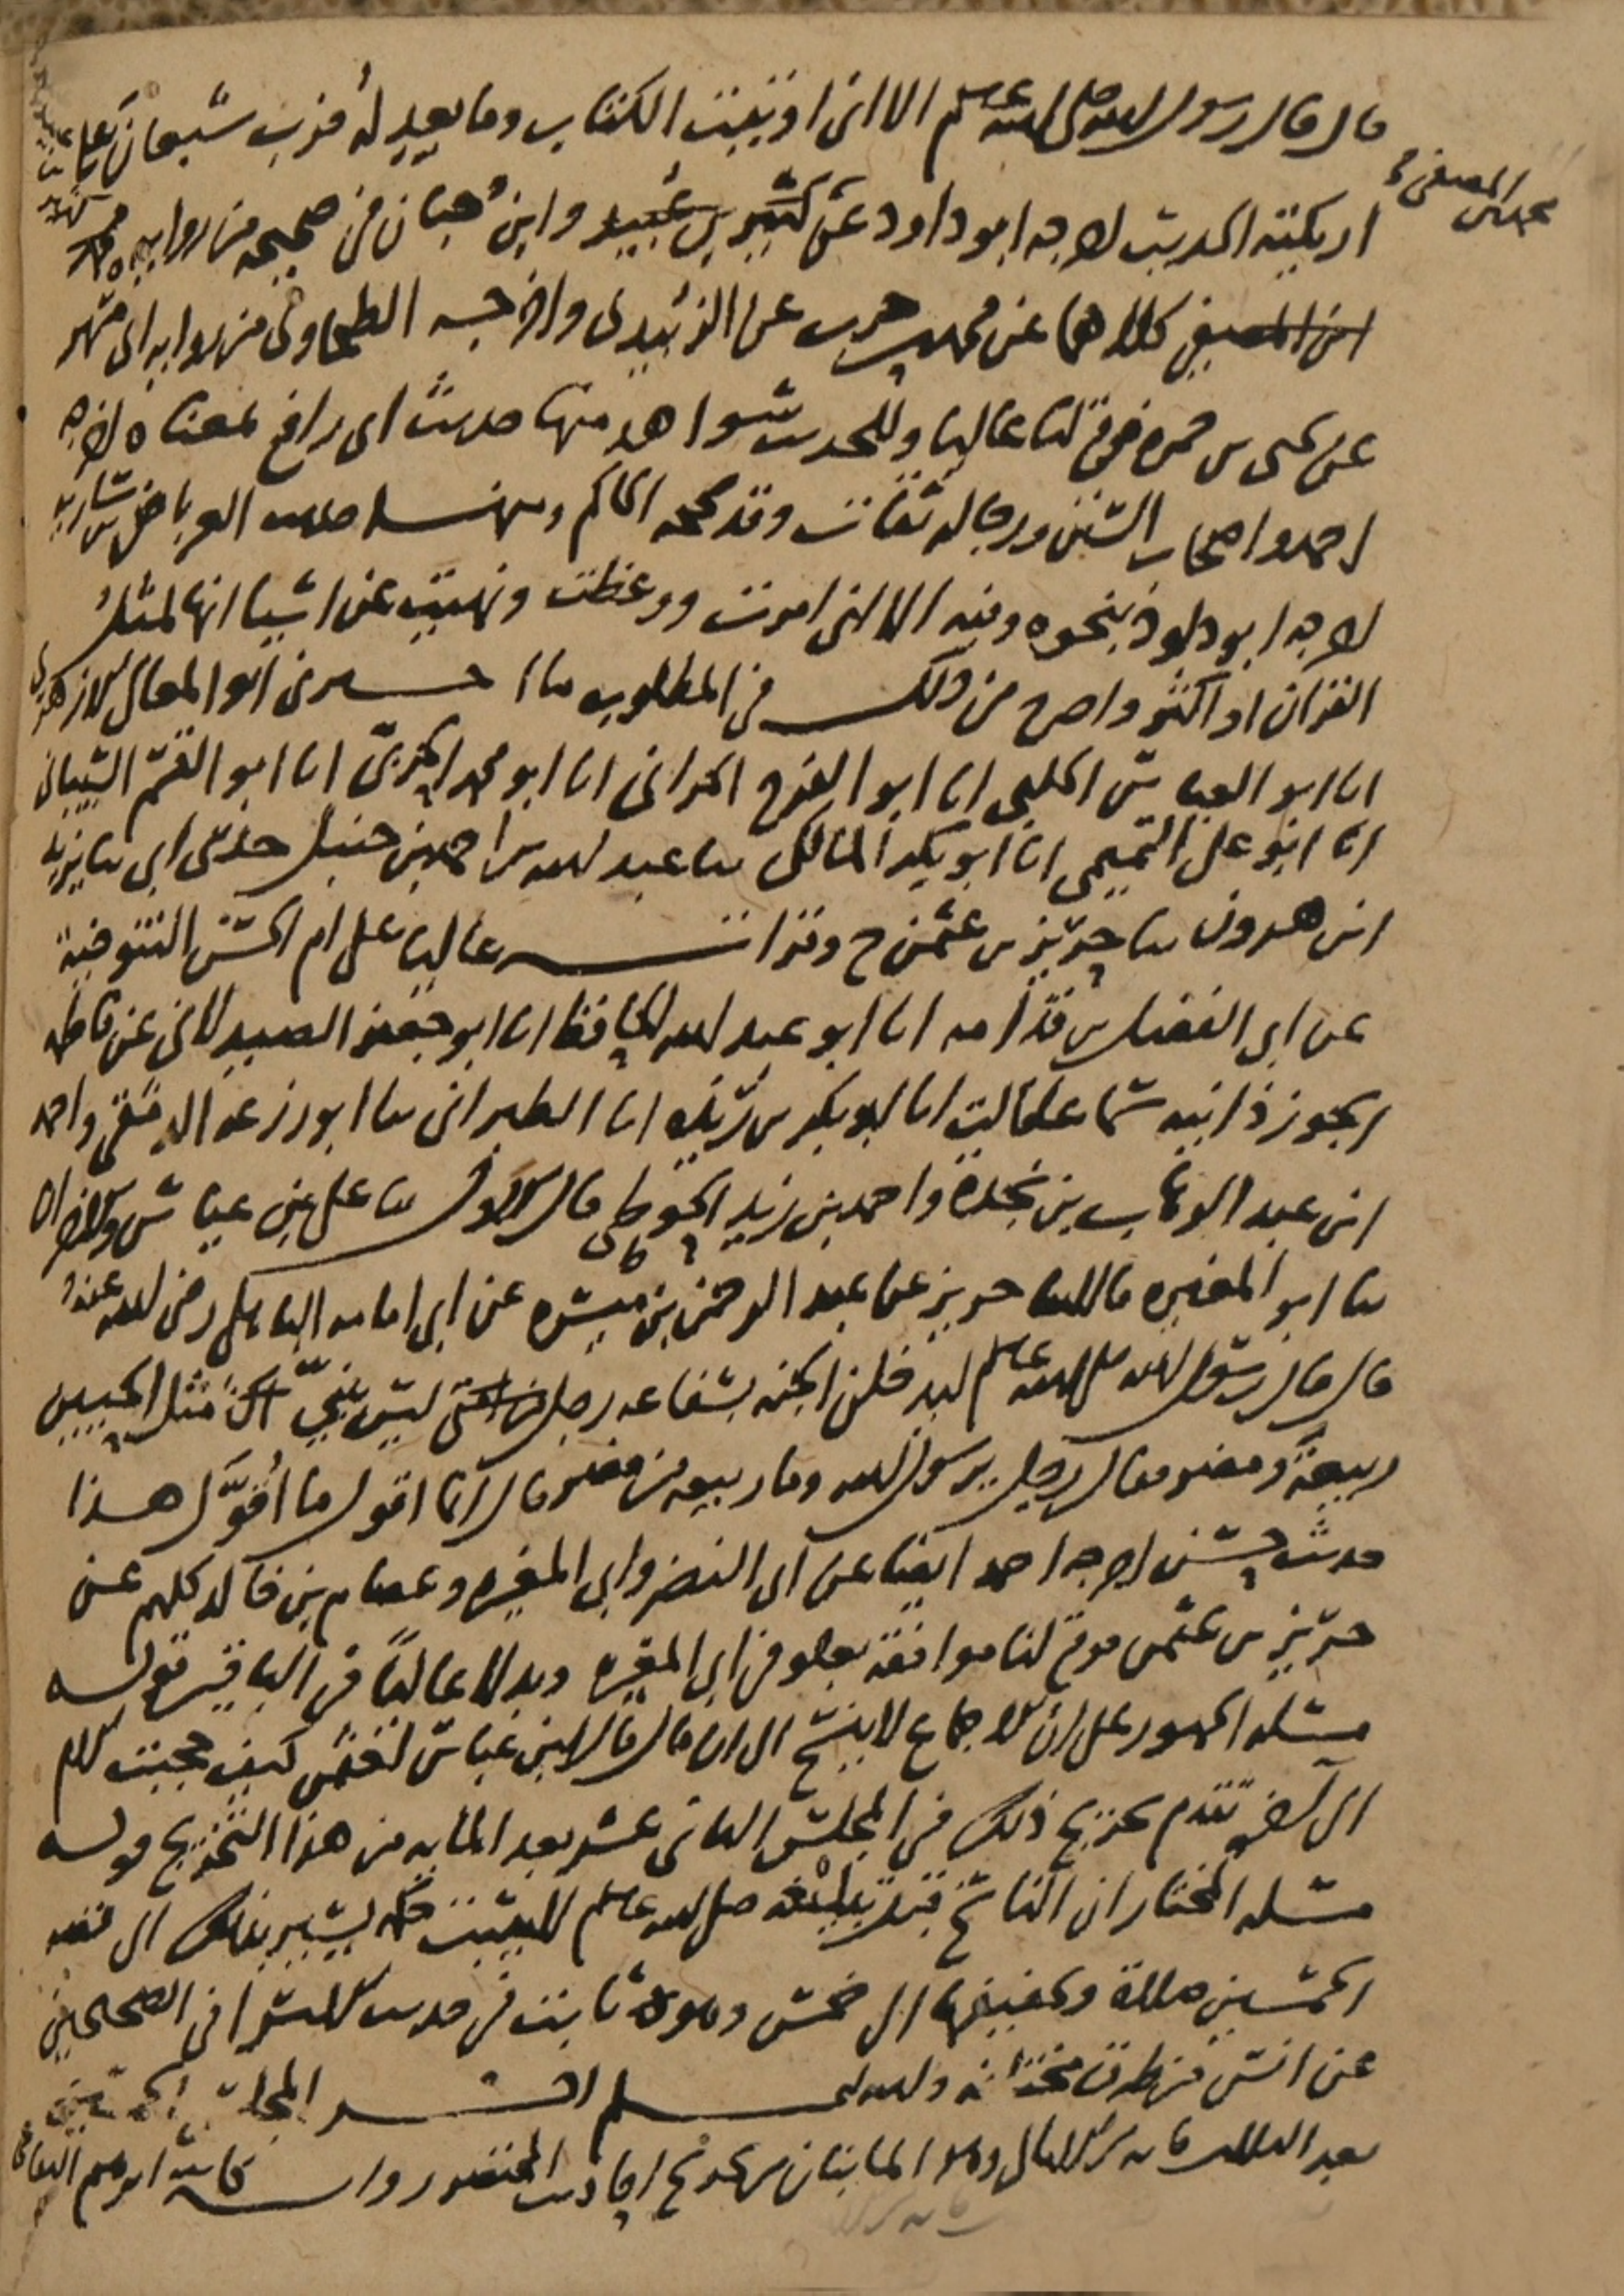 قال قال رسول الله صلى الله عليه وسلم الا انى اوتيت الكتاب وما يعدله فرب شبعان على
اريكته الحديث اخرجه ابو داود عن كثير بن عبيد وابن حبان فى صحيحه من رواية محمد
ابن المصفى كلاهما عن محمد بن حرب عن الزبيدى واخرجه الطحاوى من رواية ابى مسهر
عن يحيى بن حمزه فوقع لنا عاليا وللحديث شواهد منها حديث ابى رافع بمعناه اخرجه
احمد واصحاب السنن ورجاله ثقات وقد صححه الحاكم ومنها حديث العرباض بن ساريه
اخرجه ابو داود بنحوه وفيه الا انى امرت ووعظت ونهيت عن اشيا انها لمثل
القران او اكثر واصرح من ذلك فى المطلوب ما اخبرنى ابو المعالى الازهرى
انا ابو العباس الحلبى انا ابو الفرج الحرانى انا ابو محمد الحربى انا ابو القسم الشيبانى
انا ابو على التميمى انا ابو بكر المالكى ثنا عبد الله بن احمد بن حنبل حدثنى ابى ثنا يزيد
ابن هرون ثنا حريز بن عثمن ح وقرات عاليا على ام الحسن التنوخية
عن ابى الفضل بن قدامه انا ابو عبد الله الحافظ انا ابو جعفر الصيدلانى عن فاطمه
الجوزذانيه سماعا قالت انا ابو بكر بن ريذه انا الطبرانى ثنا ابو زرعه الدمشقى واحمد
ابن عبد الوهاب بن نجدة واحمد بن زيد الحوطى قال الاول ثنا على بن عياش والاخران
ثنا ابو المغيره قالا ثنا حريز عن عبد الرحمن بن ميسره عن ابى امامه الباهلى رضى الله عنه
قال قال رسول الله صلى الله عليه وسلم ليدخلن الجنه بشفاعه رجل من امتى ليس بنبى مثل الحيين
ربيعة ومضر فقال رجل يرسول الله وما ربيعه من مضر قال انما اقول ما اقوّل هذا
حديث حسن اخرجه احمد ايضا عن ابى النضر وابى المغيره وعصام بن خالد كلهم عن
حريز بن عثمن فوقع لنا موافقة بعلو فى ابى المغيره وبدلا عاليا فى الباقين قوله
مسئله الجمهور على ان الاجماع لا ينسخ الى ان قال قال ابن عباس لعثمن كيف تحجب الام
الى اخره تقدم تخريج ذلك فى المجلس الثانى عشر بعد المايه من هذا التخريج قوله
مسئله المختار ان الناسخ قبل تبليغه صلى الله عليه وسلم لا يثبت حكمه يشير بذلك الى قصه
الخمسين صلاة وتخفيفها الى خمس وهو ثابت فى حديث الاسرا فى الصحيحين
عن انس من طرق مختلفه والله اعلم اخر المجلس الخمسين
بعد الثلاث مايه من الامالى وهو المايتان من تخريج احاديث المختصر رواية كاتبه ابرهيم البقاعى
محمد بن المصفى